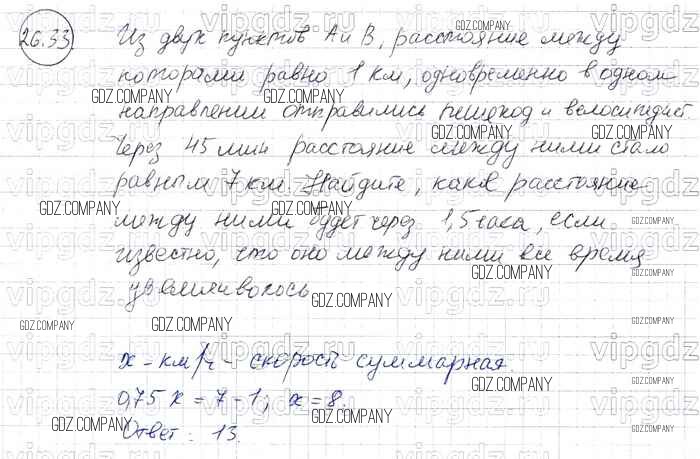 26.33
Из двух пунктов А и В, расстояние между
которыми равно 1 км, одновременно в одном
направлении отправились пешеход и велосипедист.
Через 45 мин расстояние между ними стало
равным 7 км. Найдите, какое расстояние
между ними будет через 1,5 часа, если
известно, что оно между ними все время
увеличивалось
x - км/ч - скорость суммарная.
0,75 x = 7 - 1; x = 8.
Ответ: 13.
GDZ.COMPANY
vipgdz.ru